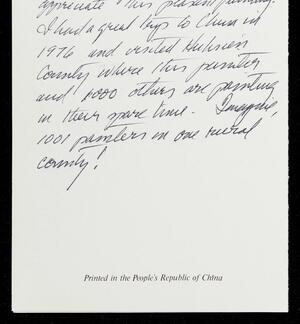 appreciate this peasant painting.
I had a great trip to China in
1976 and visited Huhsien
County where this painter
and 1000 others are painting
in their spare time. Imagine,
1001 painters in one rural
county!
Printed in the People's Republic of China